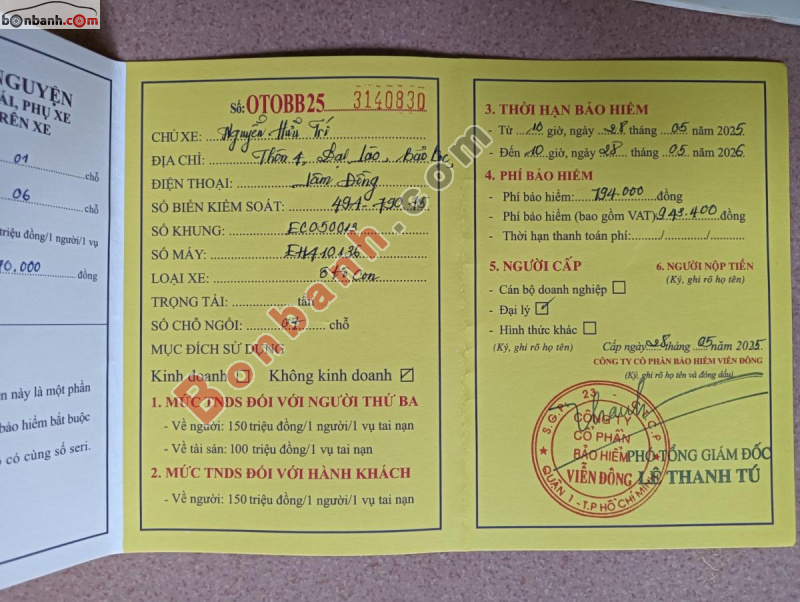 bonbanh.com
NGUYỆN
ÁI, PHỤ XE
RÊN XE
01 chỗ
06 chỗ
triệu đồng/1 người/1 vụ
đồng
ện này là một phần
bảo hiểm bắt buộc
có cùng số seri.
Số: OTOBB25 3140830
CHỦ XE: Nguyễn Hữu Trí
ĐỊA CHỈ: Thôn 4, Đại Lào, Bảo Lộc,
ĐIỆN THOẠI: Lâm Đồng
SỐ BIỂN KIỂM SOÁT: 49A-790.13
SỐ KHUNG: EC050013
SỐ MÁY: EH410136
LOẠI XE: ô tô con
TRỌNG TẢI: tấn
SỐ CHỖ NGỒI: 07 chỗ
MỤC ĐÍCH SỬ DỤNG
Kinh doanh Không kinh doanh
1. MỨC TNDS ĐỐI VỚI NGƯỜI THỨ BA
- Về người: 150 triệu đồng/1 người/1 vụ tai nạn
- Về tài sản: 100 triệu đồng/1 vụ tai nạn
2. MỨC TNDS ĐỐI VỚI HÀNH KHÁCH
- Về người: 150 triệu đồng/1 người/1 vụ tai nạn
3. THỜI HẠN BẢO HIỂM
- Từ 10 giờ, ngày 28 tháng 05 năm 2025
- Đến 10 giờ, ngày 28 tháng 05 năm 2026
4. PHÍ BẢO HIỂM
- Phí bảo hiểm: 794.000 đồng
- Phí bảo hiểm (bao gồm VAT) 943.400 đồng
- Thời hạn thanh toán phí: / /
5. NGƯỜI CẤP 6. NGƯỜI NỘP TIỀN
(Ký, ghi rõ họ tên)
- Cán bộ doanh nghiệp
- Đại lý
- Hình thức khác
(Ký, ghi rõ họ tên) Cấp ngày 28 tháng 05 năm 2025
CÔNG TY CỔ PHẦN BẢO HIỂM VIỄN ĐÔNG
(Ký, ghi rõ họ tên và đóng dấu)
CÔNG TY
CỔ PHẦN
BẢO HIỂM
VIỄN ĐÔNG
QUẬN 1 - T.P HỒ CHÍ MINH
PHÓ TỔNG GIÁM ĐỐC
LÊ THANH TÚ
Bonbanh.com